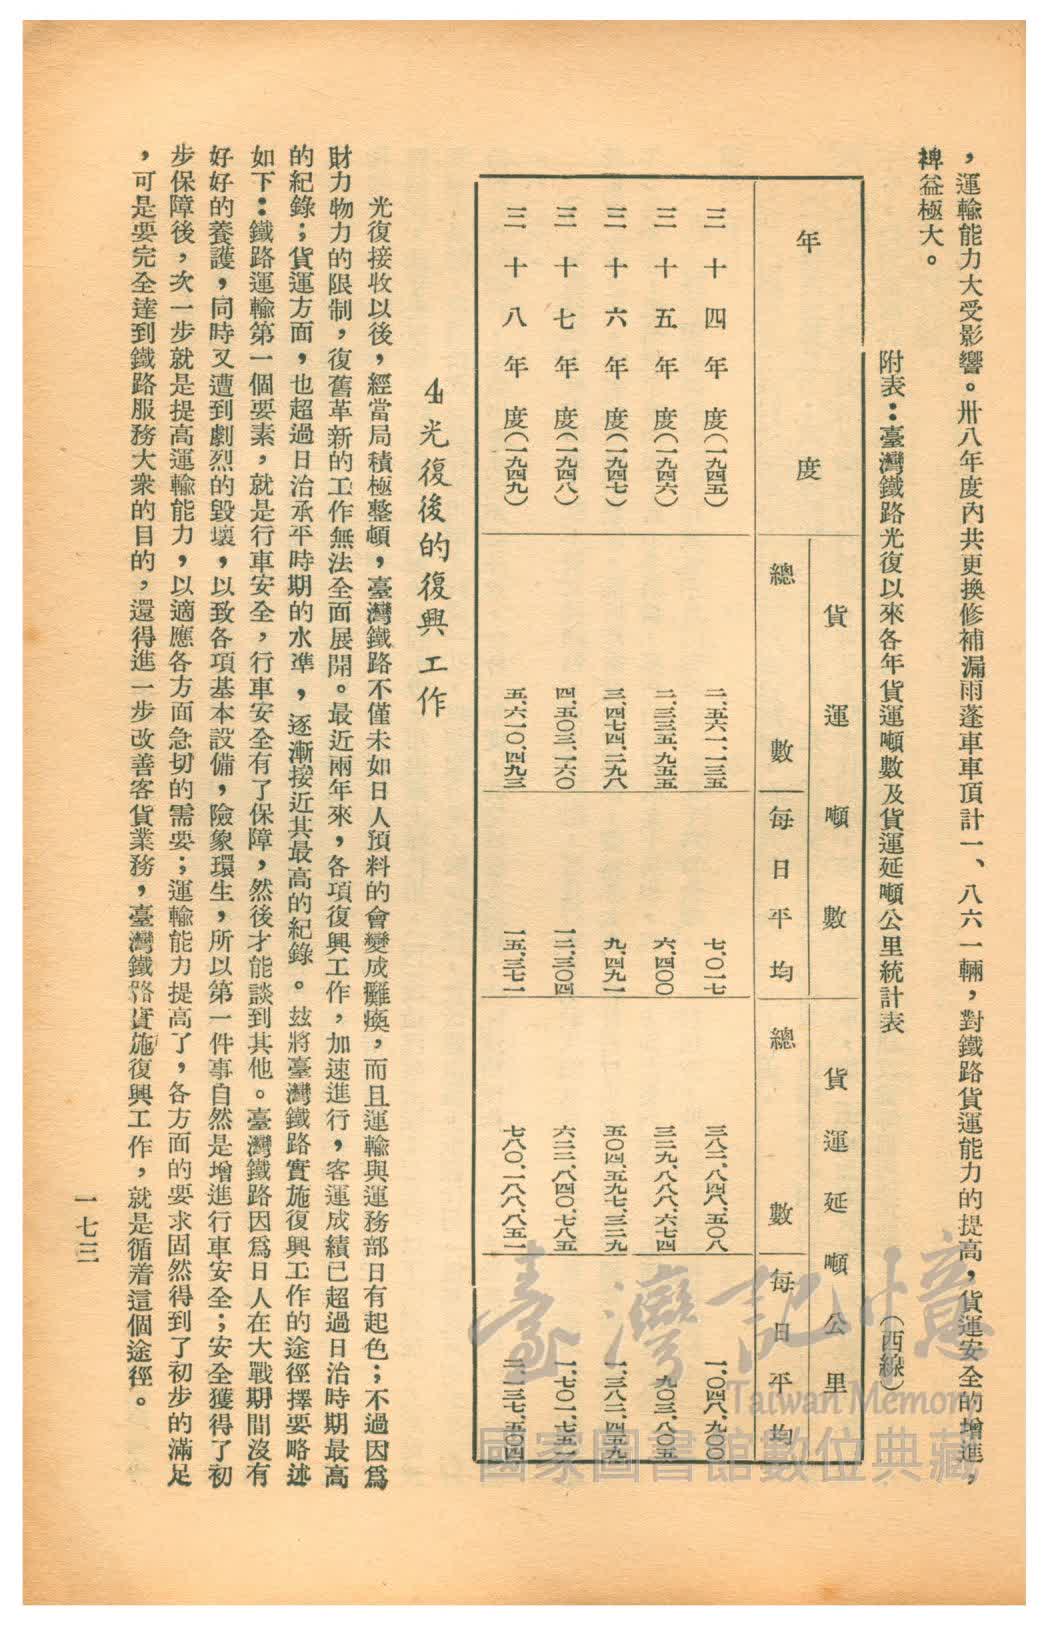 ，運輸能力大受影響。卅八年度內共更換修補漏雨蓬車車頂計一、八六一輛，對鐵路貨運能力的提高，貨運安全的增進，
裨益極大。
附表：臺灣鐵路光復以來各年貨運噸數及貨運延噸公里統計表　（西線）
年度　貨運噸數　貨運延噸公里
總數　每日平均　總數　每日平均
三十四年度（一九四五）　二、五六一、一三五　七、〇一七　三八二、八四八、五〇八　一、〇四八、九〇〇
三十五年度（一九四六）　二、三三五、九五五　六、四〇〇　三二九、八八八、六七四　九〇三、八〇五
三十六年度（一九四七）　三、四七四、二九八　九、四九一　五〇四、五九七、三二九　一、三八二、四五九
三十七年度（一九四八）　四、五〇三、一六〇　一二、三〇四　六二二、八四〇、七八五　一、七〇一、七五一
三十八年度（一九四九）　五、六一〇、四九三　一五、三七一　七八〇、一八八、八五一　二、一三七、五〇四
4 光復後的復興工作
光復接收以後，經當局積極整頓，臺灣鐵路不僅未如日人預料的會變成癱瘓，而且運輸與運務部日有起色；不過因爲
財力物力的限制，復舊革新的工作無法全面展開。最近兩年來，各項復興工作，加速進行，客運成績已超過日治時期最高
的紀錄；貨運方面，也超過日治承平時期的水準，逐漸接近其最高的紀錄。玆將臺灣鐵路實施復興工作的途徑擇要略述
如下：鐵路運輸第一個要素，就是行車安全，行車安全有了保障，然後才能談到其他。臺灣鐵路因爲日人在大戰期間沒有
好好的養護，同時又遭到劇烈的毀壞，以致各項基本設備，險象環生，所以第一件事自然是增進行車安全；安全獲得了初
步保障後，次一步就是提高運輸能力，以適應各方面急切的需要；運輸能力提高了，各方面的要求固然得到了初步的滿足
，可是要完全達到鐵路服務大衆的目的，還得進一步改善客貨業務，臺灣鐵路實施復興工作，就是循着這個途徑。
一七三
臺灣記憶
Taiwan Memory
國家圖書館數位典藏